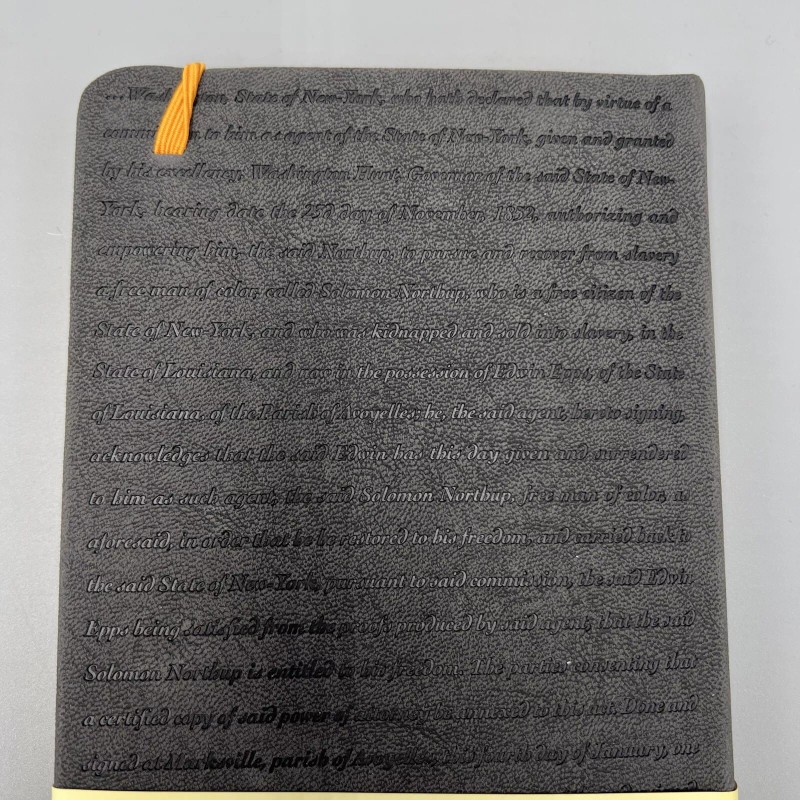 ...Washington, State of New-York, who hath declared that by virtue of a
commission to him as agent of the State of New-York, given and granted
by his excellency, Washington Hunt, Governor of the said State of New-
York, bearing date the 23d day of November, 1852, authorizing and
empowering him, the said Northup, to pursue and recover from slavery
a free man of color, called Solomon Northup, who is a free citizen of the
State of New-York, and who was kidnapped and sold into slavery, in the
State of Louisiana, and now in the possession of Edwin Epps, of the State
of Louisiana, of the Parish of Avoyelles; he, the said agent, hereto signing,
acknowledges that the said Edwin has this day given and surrendered
to him as such agent, the said Solomon Northup, free man of color, as
aforesaid, in order that he be restored to his freedom, and carried back to
the said State of New-York, pursuant to said commission, the said Edwin
Epps being satisfied from the proofs produced by said agent, that the said
Solomon Northup is entitled to his freedom. The parties consenting that
a certified copy of said power of attorney be annexed to this act. Done and
signed at Marksville, parish of Avoyelles, this fourth day of January, one